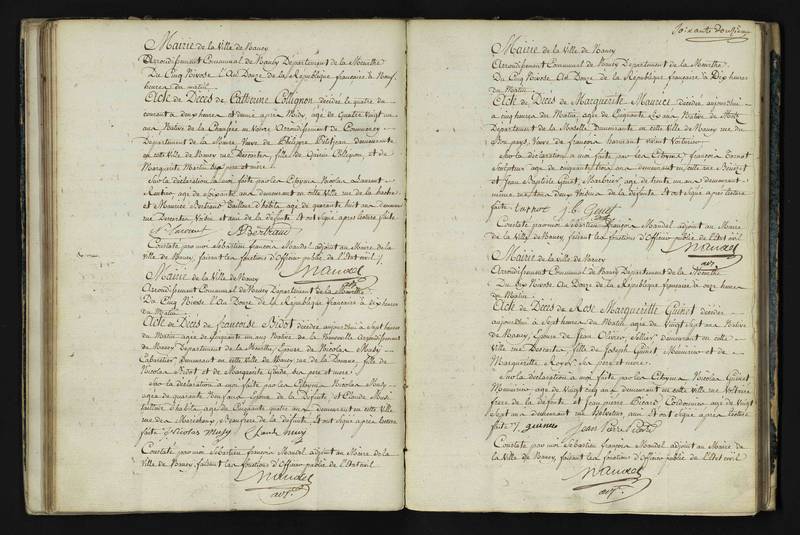 Mairie de la Ville de Nancy
Arrondissement Communal de Nancy Département de la Meurthe
Du Cinq Nivose l'An Douze de la République française à Neuf
heures du matin
Acte de Décès de Catherine Collignon décédée le quatre du
courant à deux heures et demie après Midi, agée de Quatre Vingt un
ans Native de la Chaussée en Voivre Arrondissement de Commercy
Département de la Meuse Veuve de Philippe Petitjean demeurante
en cette Ville de Nancy rue Descartes, fille de Collignon, et de
Marguerite Martin ses père et mère
Sur la déclaration à moi faite par les Citoyens Nicolas Laurent
Rentier agé de Soixante ans demeurant en cette Ville rue de la hache
et Maurice Bertrand Tailleur d'habits agé de quarante huit ans demeurant
rue Descartes Voisin et ami de la défunte Et ont signé après lecture faite
N Laurent MBertrand
Constaté par moi Sébastien françois Mandel adjoint au Maire de la
Ville de Nancy, faisant les fonctions d'Officier public de l'Etat civil
Mandel
adjt.
Mairie de la Ville de Nancy
Arrondissement Communal de Nancy Département de la Meurthe
Du Cinq Nivose l'An Douze de la République française à dix heures
du Matin
Acte de Décès de françoise Bidot décédée aujourd'hui à Sept heures
du Matin agée de Cinquante un ans Native de la Arrondissement
de Nancy Département de la Meurthe, Epouse de Nicolas Musy
Cabaretier demeurant en cette Ville de Nancy rue de la Douane, fille de
Nicolas Bidot et de Marguerite ses père et mère
Sur la déclaration à moi faite par les Citoyens Nicolas Musy
agé de quarante Neuf ans Epoux de la Défunte et Claude Musy
tailleur d'habits agé de Cinquante quatre ans demeurant en cette Ville
rue des Maréchaux, beaufrère de la défunte Et ont signé après lecture
faite Nicolas musy Claude musy
Constaté par moi Sébastien françois Mandel adjoint au Maire de la
Ville de Nancy, faisant les fonctions d'Officier public de l'Etat civil
Mandel
adjt.
Soixante douzième
Mairie de la Ville de Nancy
Arrondissement Communal de Nancy Département de la Meurthe
Du Cinq Nivose An Douze de la République française à Dix heures
du Matin
Acte de Décès de Marguerite Maurice décédée aujourd'hui
à cinq heures du Matin, agée de Cinquante ans Native de Metz
Département de la Moselle demeurante en cette Ville de Nancy rue du
Bon pays, Veuve de françois vivant Voiturier
Sur la déclaration à moi faite par les Citoyens françois Tornot
Sculpteur agé de cinquante trois ans demeurant en cette rue
et Jean Baptiste Genet, Marbrier, agé de trente ans demeurant
même rue, tous deux Voisins de la défunte Et ont signé après lecture
faite tornot J. B. Genet
Constaté par moi Sébastien François Mandel adjoint au Maire
de la Ville de Nancy, faisant les fonctions d'Officier public de l'Etat civil
Mandel
adjt.
Mairie de la Ville de Nancy
Arrondissement Communal de Nancy Département de la Meurthe
Du Six Nivose An Douze de la République française à onze heures
du Matin
Acte de Décès de Rose Marguerite Guinet décédée
aujourd'hui à Sept heures du Matin agée de Vingt Sept ans Native
de Nancy, Epouse de Jean Olivier, Sellier demeurant en cette
Ville rue Descartes, fille de Joseph Guinet Menuisier et de
Marguerite ses père et mère
Sur la déclaration à moi faite par les Citoyens Nicolas Guinet
Menuisier agé de Vingt cinq ans demeurant en cette Ville rue Voltaire
frère de la défunte et Jean pierre Picard Cordonnier agé de Vingt
Sept ans demeurant rue Helvetius, ami Et ont signé après lecture
faite guinet Jean Pierre
Constaté par moi Sébastien françois Mandel adjoint au Maire de
la Ville de Nancy, faisant les fonctions d'Officier public de l'Etat civil
Mandel
adjt.